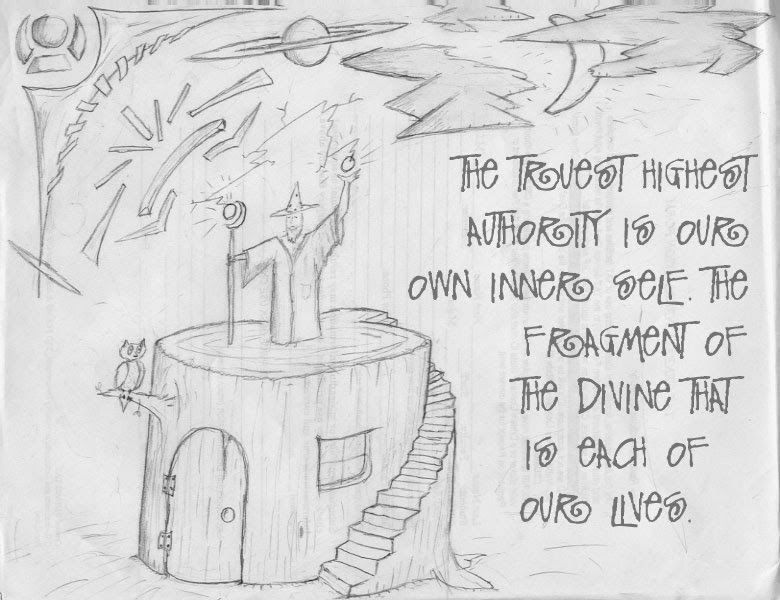 THE TRUEST HIGHEST
AUTHORITY IS OUR
OWN INNER SELF. THE
FRAGMENT OF
THE DIVINE THAT
IS EACH OF
OUR LIVES.